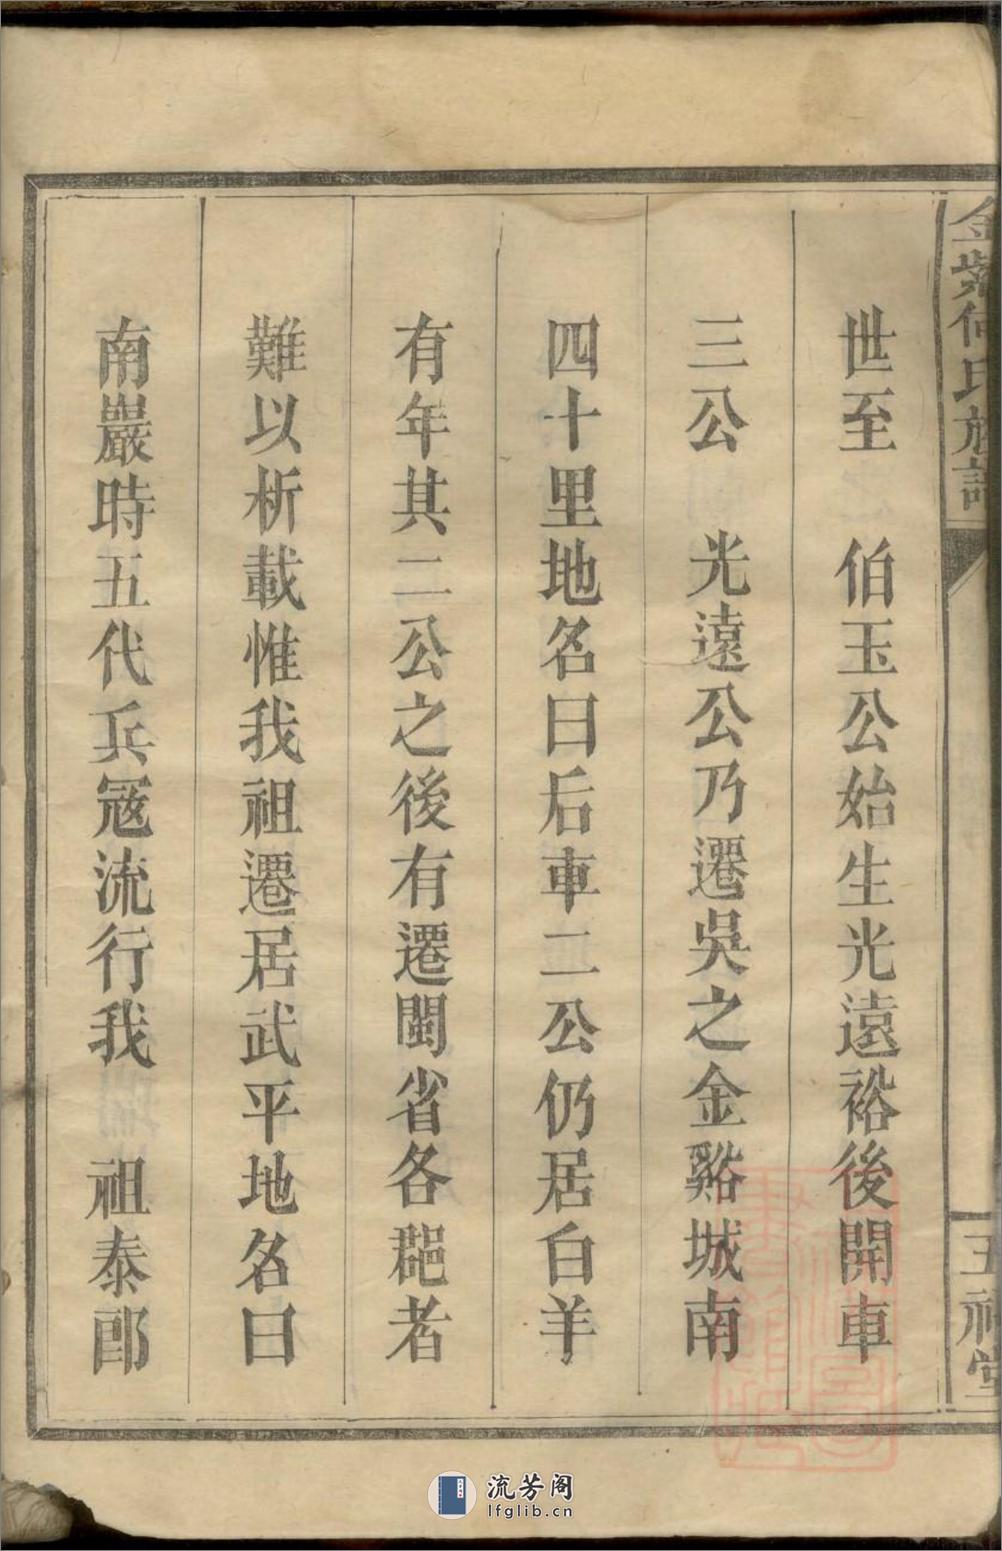 世至　伯玉公始生光遠裕後開車
三公　光遠公乃遷吳之金谿城南
四十里地名曰后車二公仍居白羊
有年其二公之後有遷閩省各郡者
難以析載惟我祖遷居武平地名曰
南巖時五代兵冦流行我　祖泰郎
金紫何氏族譜
流芳阁
lfglib.cn